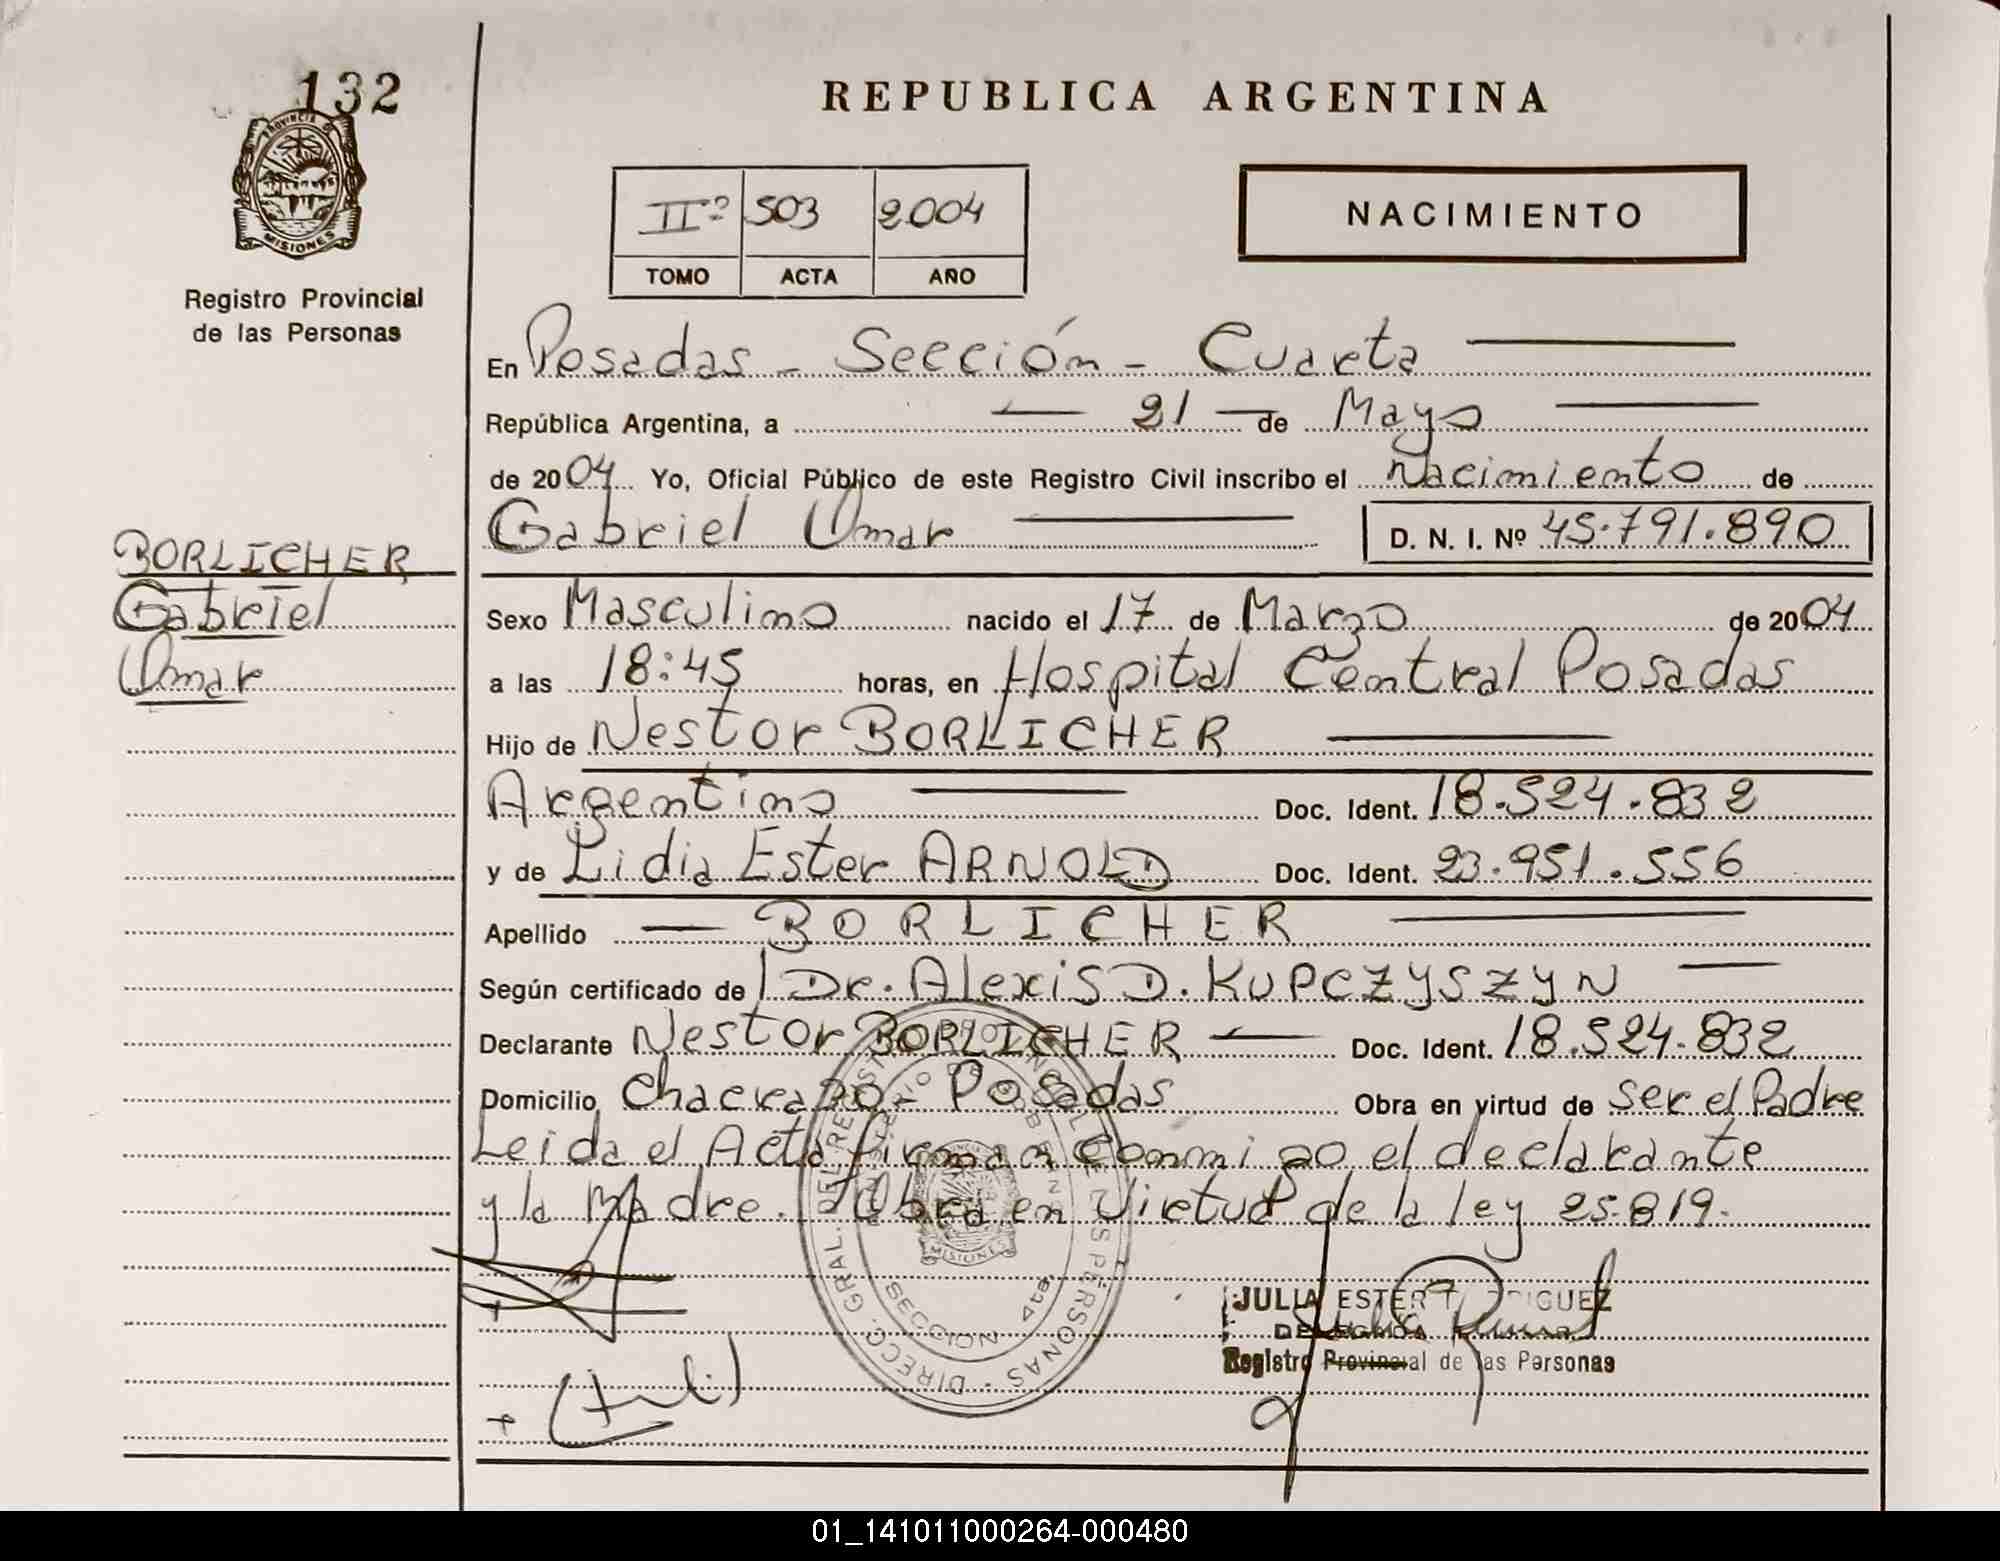 132
PROVINCIA DE
MISIONES
Registro Provincial
de las Personas
BORLICHER
Gabriel
Omar
REPUBLICA ARGENTINA
IIº 503 2004
TOMO ACTA AÑO
NACIMIENTO
En Posadas - Sección - Cuarta
República Argentina, a 21 de Mayo
de 2004 Yo, Oficial Público de este Registro Civil inscribo el Nacimiento de
Gabriel Omar D. N. I. Nº 45.791.890
Sexo Masculino nacido el 17 de Marzo de 2004
a las 18:45 horas, en Hospital Central Posadas
Hijo de Nestor BORLICHER
Argentino Doc. Ident. 18.524.832
y de Lidia Ester ARNOLD Doc. Ident. 23.951.556
Apellido BORLICHER
Según certificado de Dr. Alexis D. KUPCZYSZYN
Declarante Nestor BORLICHER Doc. Ident. 18.524.832
Domicilio Posadas Obra en virtud de ser el Padre
Leida el Acta firman conmigo el declarante
y la Madre. Obra en Virtud de la ley 25.819.
DIRECC. GRAL. DEL REGISTRO PROVINCIAL DE LAS PERSONAS
MINISTERIO DE GOBIERNO
MISIONES
SECCION 4ta.
JULIA ESTER
Registro Provincial de las Personas
01_141011000264-000480